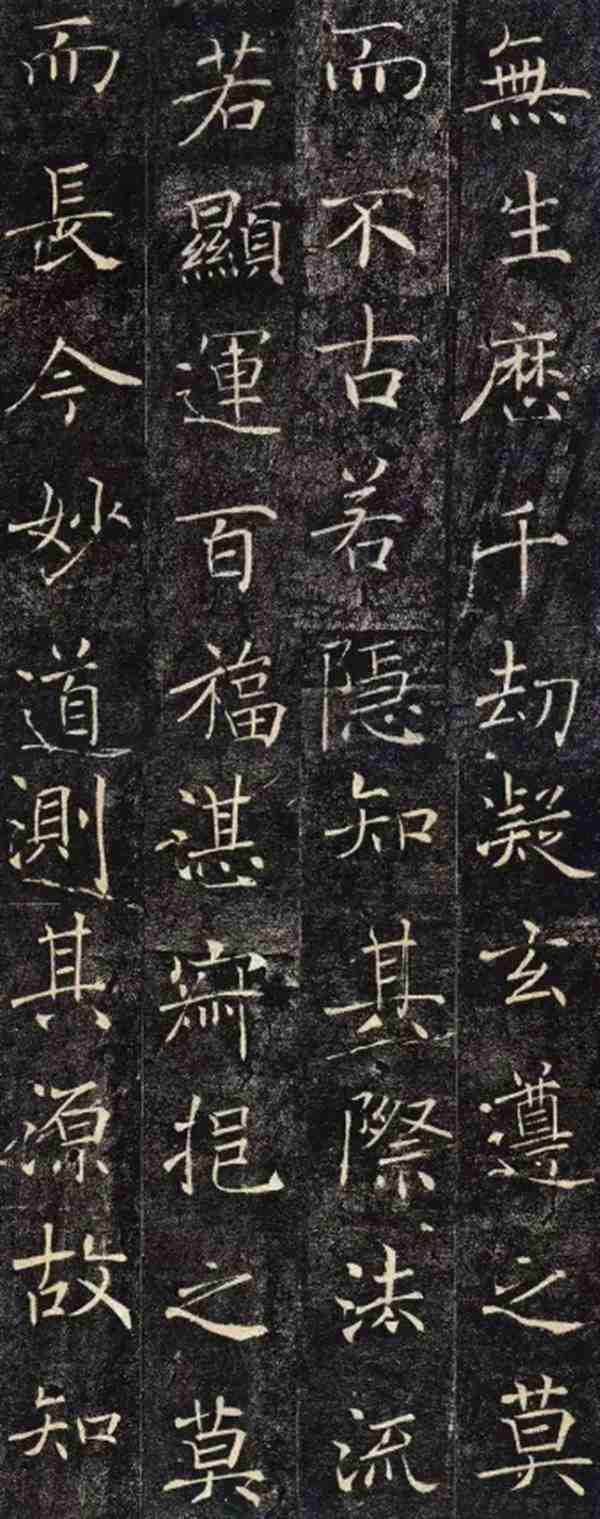 無生歷千劫
而不古若隱
若顯運百福
而長今妙道
凝玄遵之莫
知其際法流
湛寂挹之莫
測其源故知